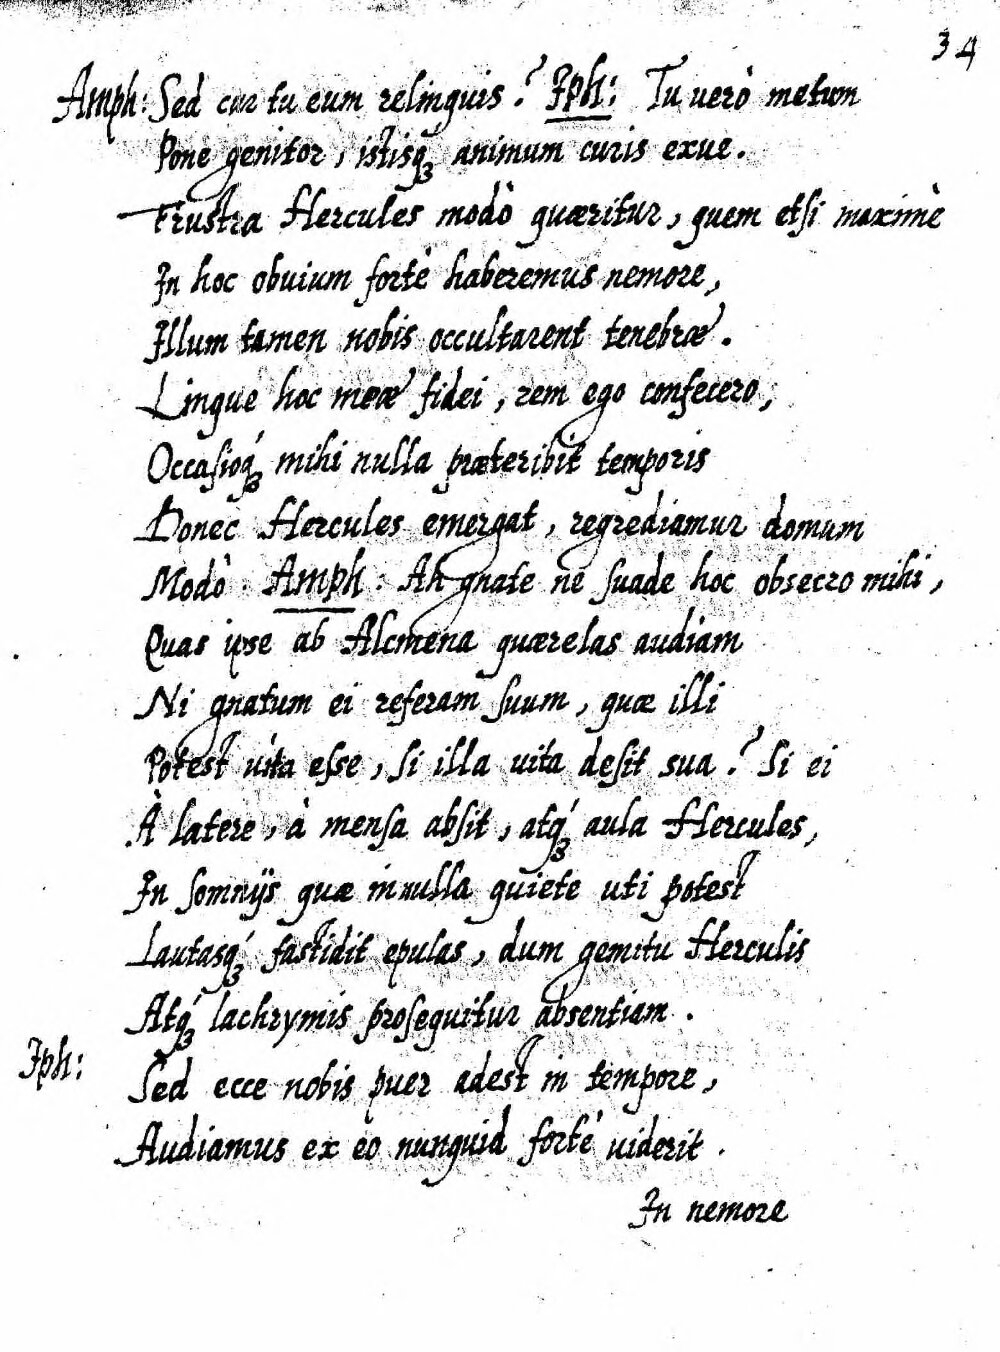 34
Amph: Sed cur tu eum relinquis? Iph: Tu uerò metum
Pone genitor, istisq́ꝫ animum curis exue.
Frustra Hercules modò quæritur, quem etsi maximè
In hoc obuium fortè haberemus nemore,
Illum tamen nobis occultarent tenebræ.
Linque hoc meæ fidei, rem ego confecero,
Occasioq́ꝫ mihi nulla præteribit temporis
Donec Hercules emergat, regrediamur domum
Modò. Amph: Ah gnate ne suade hoc obsecro mihi,
Quas ipse ab Alcmena quærelas audiam
Ni gnatum ei referam suum, quæ illi
Potest uita esse, si illa uita desit sua? Si ei
À latere, à mensa absit, atq́ꝫ aula Hercules,
In somnijs quæ in nulla quiete uti potest
Lautasq́ꝫ fastidit epulas, dum gemitu Herculis
Atq́ꝫ lachrymis prosequitur absentiam.
Iph: Sed ecce nobis puer adest in tempore,
Audiamus ex eo nunquid fortè uiderit.
In nemore